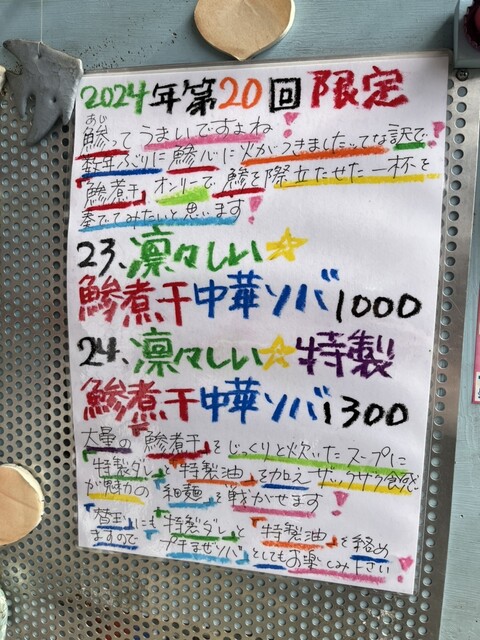 2024年第20回限定
あじ
鯵ってうまいですよね！
数年ぶりに鯵心に火がつきましたってな訳で
鯵煮干オンリーで鯵を際立たせた一杯を
奏でてみたいと思います！
23、凛々しい☆
鯵煮干中華ソバ1000
24、凛々しい☆特製
鯵煮干中華ソバ1300
大量の鯵煮干をじっくりと炊いたスープに
特製ダレ、特製油を加えザックザク食感
が魅力の細麺を戦がせます！
替玉にも特製ダレと特製油を絡め
ますのでプチまぜソバとしてもお楽しみ下さい！